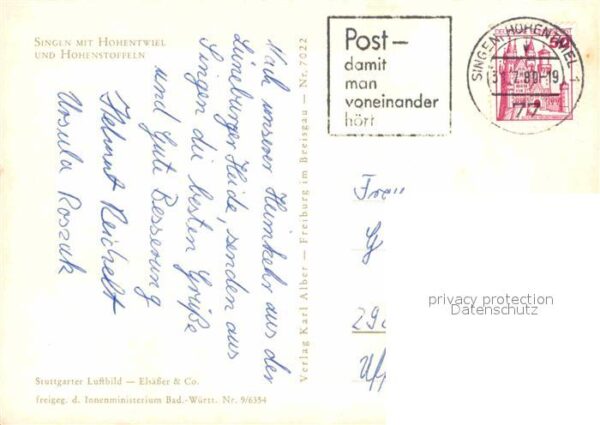 Singen mit Hohentwiel
und Hohenstoffeln
Nach unserer Heimkehr aus der
Lüneburger Heide, senden aus
Singen die besten Grüße
und Gute Besserung
Helmut Reichelt
Ursula Roszuk
Stuttgarter Luftbild — Elsäßer & Co.
freigeg. d. Innenministerium Bad.-Württ. Nr. 9/6354
Verlag Karl Alber — Freiburg im Breisgau — Nr. 7022
Post —
damit
man
voneinander
hört
SINGEN, HOHENTWIEL 1
31.7.80-19
77
privacy protection
Datenschutz